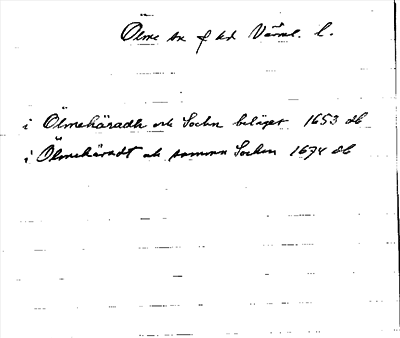 Ölme sn f hd Värml. l.
i Ölmehäradh och Sochn beläget 1653 db
i Ölmehäradt ok samma Sochen 1674 db